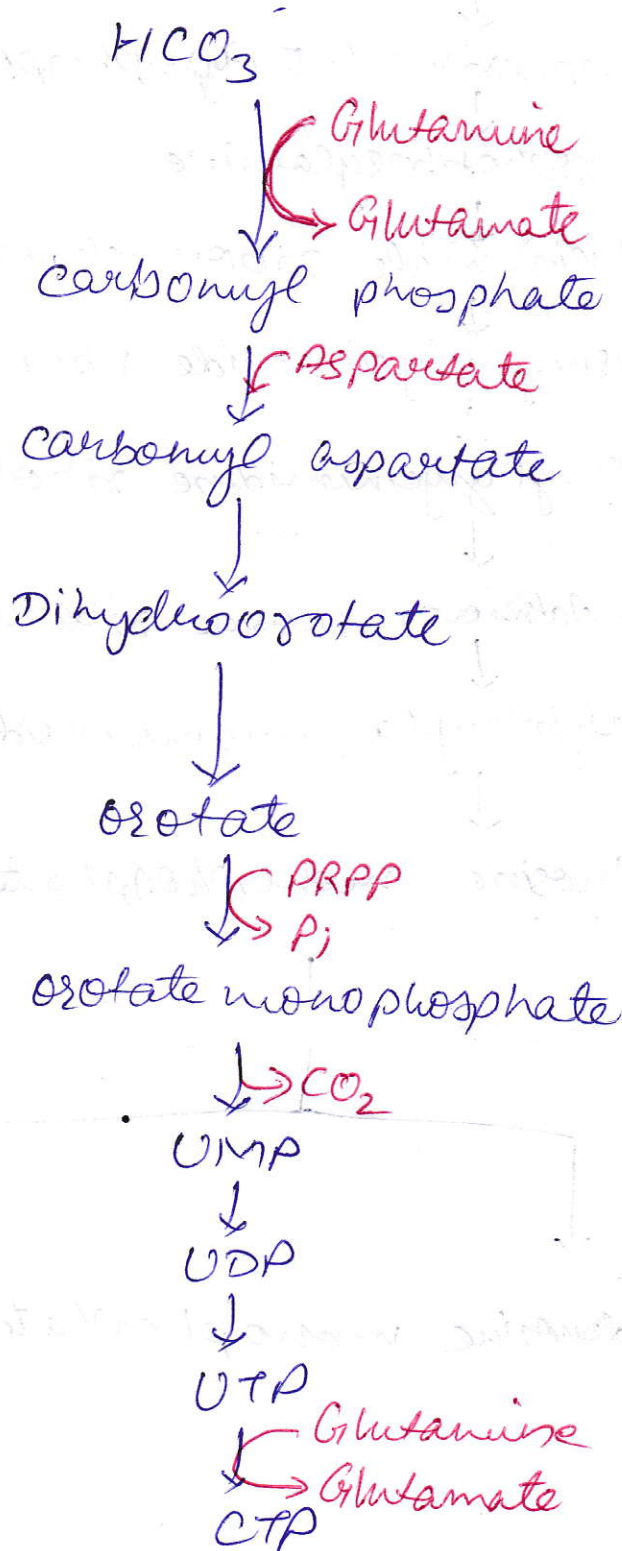 HCO3
Glutamine
Glutamate
Carbomyl phosphate
Aspartate
Carbomyl aspartate
Dihydroorotate
Orotate
PRPP
Pi
Orotate monophosphate
CO2
UMP
UDP
UTP
Glutamine
Glutamate
CTP